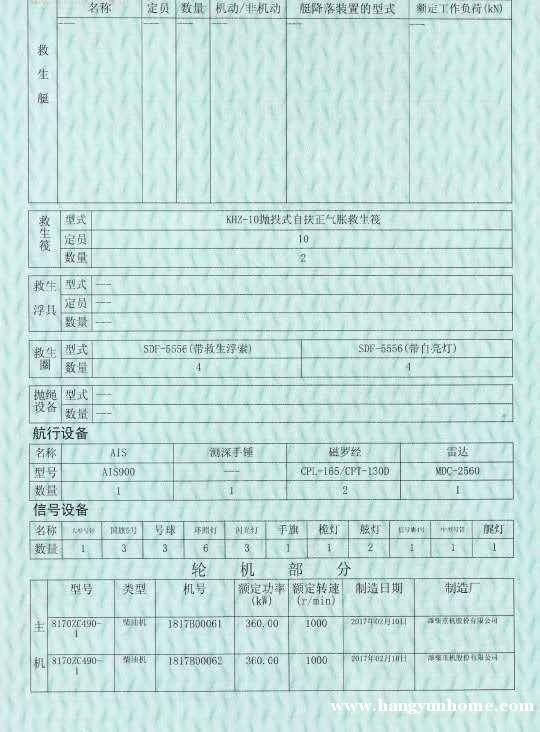 名称 定员 数量 机动/非机动 艇降落装置的型式 额定工作负荷(kN)
救生艇 --- --- --- --- --- ---
救生筏 型式 KHZ-10抛投式自扶正气胀救生筏
定员 10
数量 2
救生浮具 型式 ---
定员 ---
数量 ---
救生圈 型式 SDF-5556(带救生浮索) SDF-5556(带自亮灯)
数量 4 4
抛绳设备 型式 ---
数量 ---
航行设备
名称 AIS 测深手锤 磁罗经 雷达
型号 AIS900 --- CPL-165/CPT-130D MDC-2560
数量 1 1 2 1
信号设备
名称 国旗5号 号球 环照灯 闪光灯 手旗 桅灯 舷灯 艉灯
数量 1 3 3 6 3 1 1 2 1 1 1
轮机部分
型号 类型 机号 额定功率(kW) 额定转速(r/min) 制造日期 制造厂
主机 8170ZC490-1 柴油机 1817B00061 360.00 1000 2017年02月10日 潍柴重机股份有限公司
8170ZC490-1 柴油机 1817B00062 360.00 1000 2017年02月10日 潍柴重机股份有限公司
www.hangyunhome.com